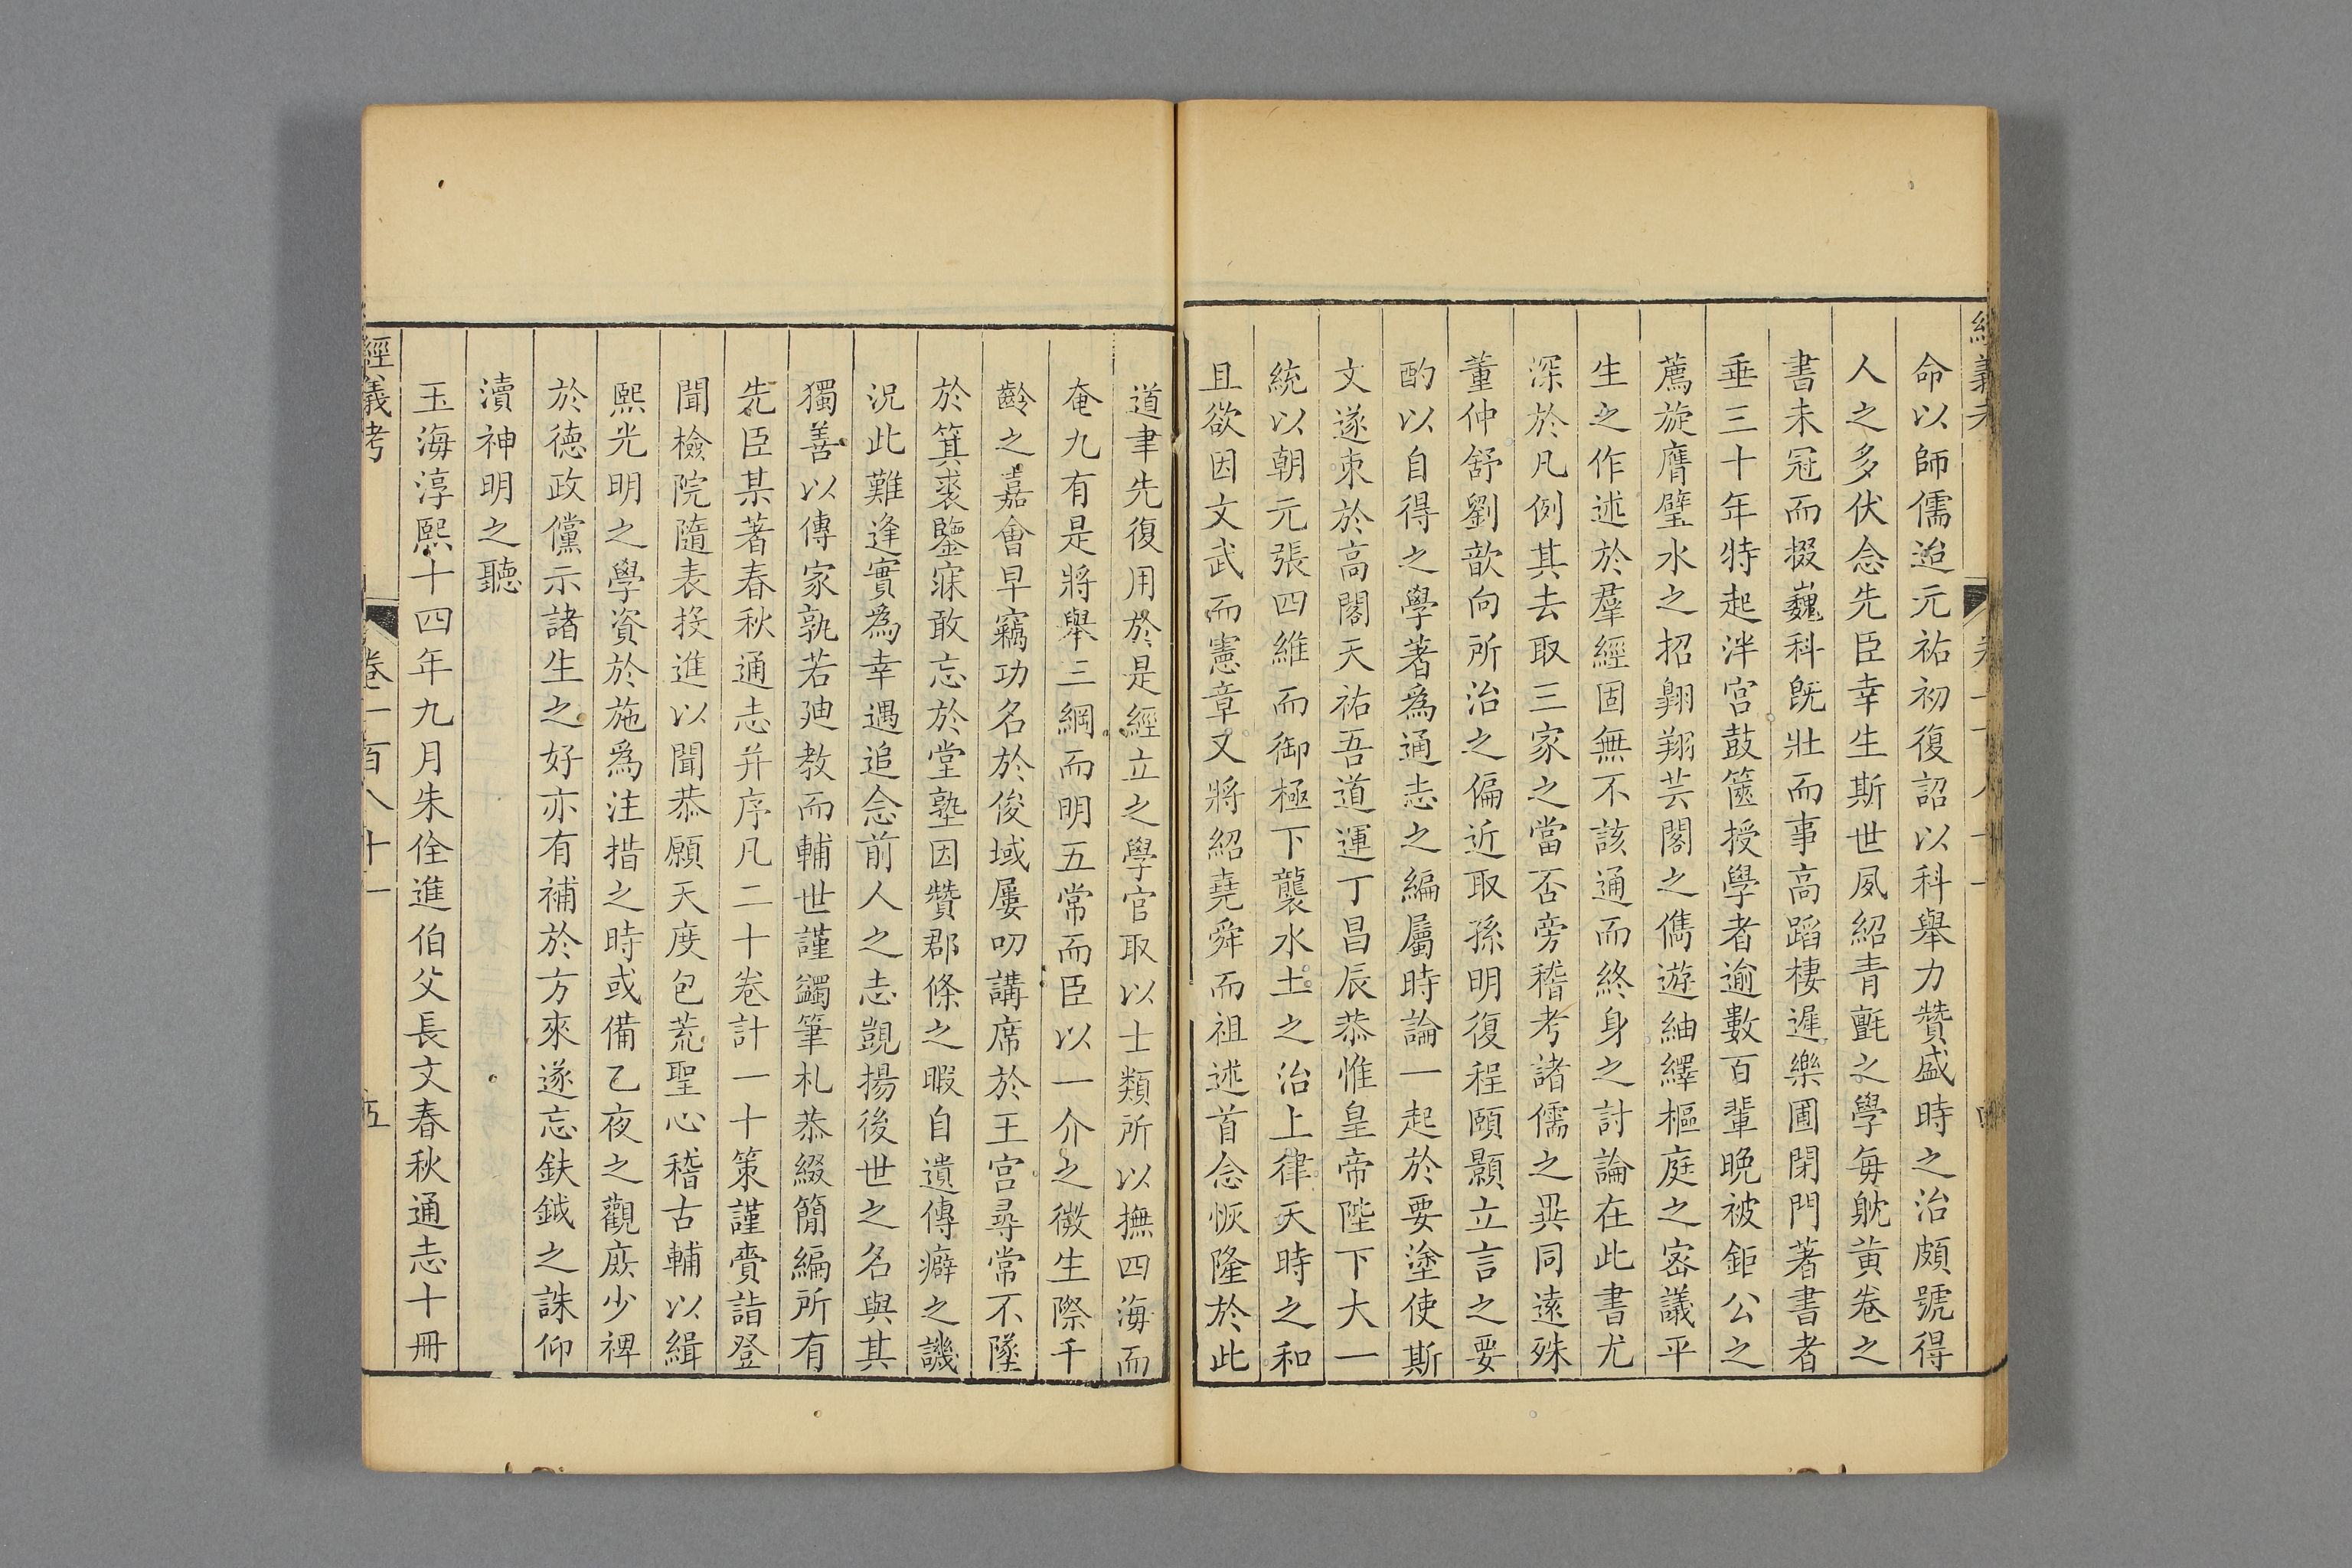 命以師儒迨元祐初復詔以科舉力贊盛時之治頗號得
人之多伏念先臣幸生斯世夙紹青氈之學每躭黃卷之
書未冠而掇巍科旣壯而事高蹈棲遲樂圃閉門著書者
垂三十年特起泮宫鼓篋授學者逾數百輩晩被鉅公之
薦旋膺璧水之招翺翔芸閣之儁遊紬繹樞庭之宻議平
生之作述於羣經固無不該通而終身之討論在此書尤
深於凡例其去取三家之當否旁稽考諸儒之異同逺殊
董仲舒劉歆向所治之偏近取孫明復程頤顥立言之要
酌以自得之學著爲通志之編屬時論一起於要塗使斯
文遂束於高閣天祐吾道運丁昌辰恭惟皇帝陛下大一
統以朝元張四維而御極下襲水土之治上律天時之和
且欲因文武而憲章又將紹堯舜而祖述首念恢隆於此
道聿先復用於是經立之學官取以士類所以撫四海而
奄九有是將舉三綱而明五常而臣以一介之微生際千
齡之嘉會早竊功名於俊域屢叨講席於王宫尋常不墜
於箕裘鑒寐敢忘於堂塾因贊郡條之暇自遺傳癖之譏
況此難逢實爲幸遇追念前人之志覬揚後世之名與其
獨善以傳家孰若廸教而輔世謹蠲筆札恭綴簡編所有
先臣某著春秋通志并序凡二十卷計一十策謹賫詣登
聞檢院隨表投進以聞恭願天度包荒聖心稽古輔以緝
熙光明之學資於施爲注措之時或備乙夜之觀庻少裨
於德政儻示諸生之好亦有補於方來遂忘鈇鉞之誅仰
瀆神明之聽
玉海淳熙十四年九月朱佺進伯父長文春秋通志十冊
經義考 卷一百八十一 五